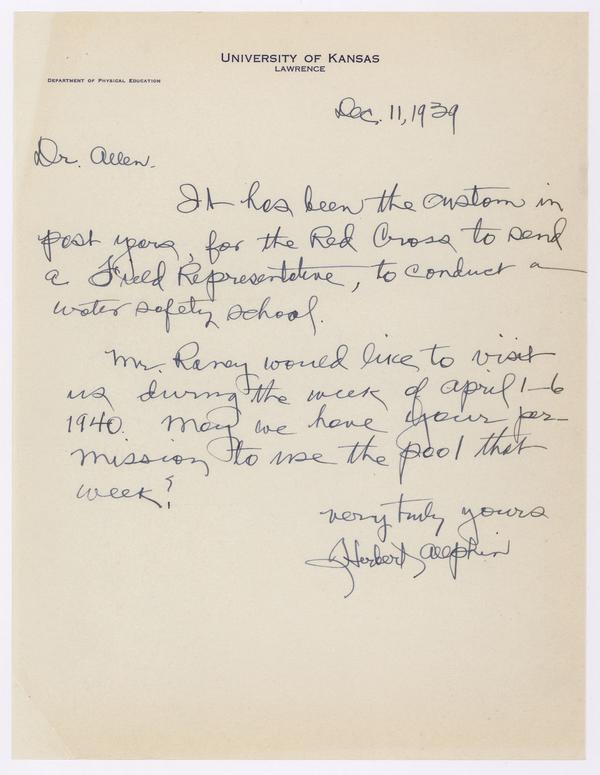 University of Kansas
Lawrence
Department of Physical Education
Dec. 11, 1939
Dr. Allen.
It has been the custom in
past years, for the Red Cross to send
a Field Representative, to conduct a
water safety school.
Mr. Raney would like to visit
us during the week of April 1-6
1940. May we have your per-
mission to use the pool that
week?
very truly yours
Herbert Allphin